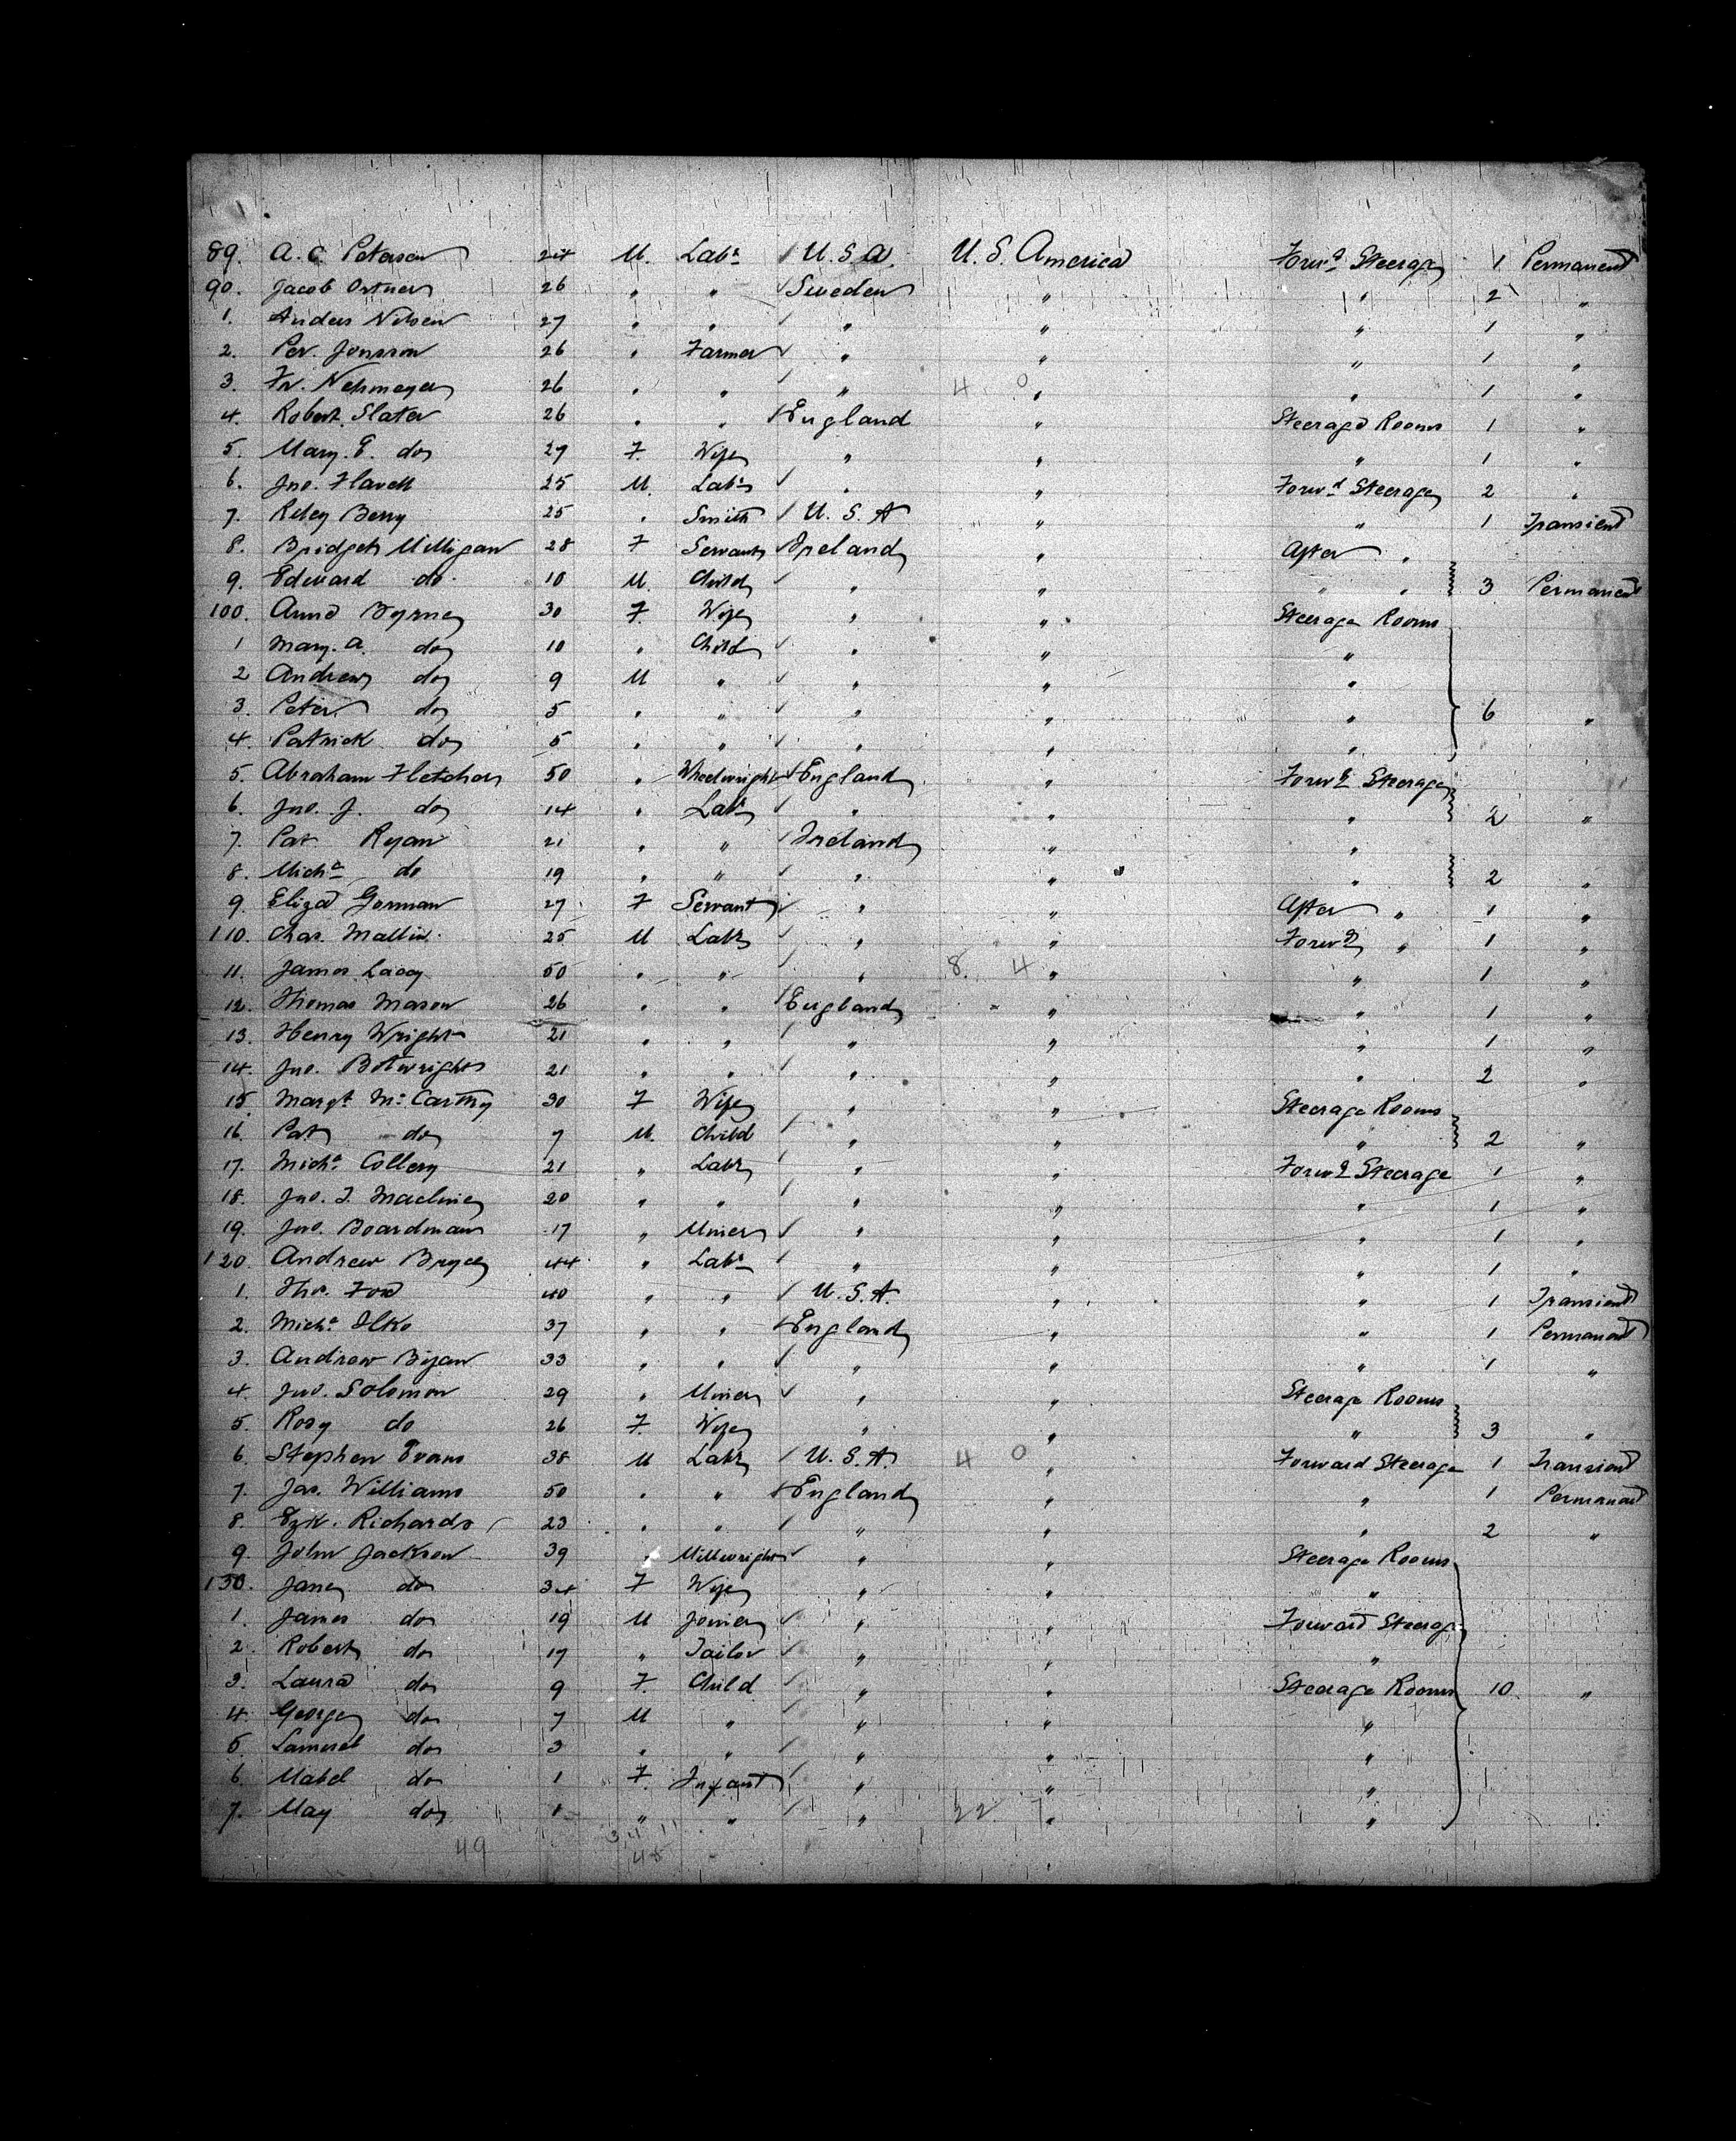 89. A. C. Peterson 24 M. Labr U.S.A. U.S. America Forwd Steerage 1 Permanent
90. Jacob Ortner 26 " " Sweden " " 2 "
1. Anders Nelson 27 " " " " " 1 "
2. Per. Jonsson 26 " Farmer " " " 1 "
3. Fr. Nehmeyer 26 " " " 4 0 " " 1 "
4. Robert Slater 26 " " England " Steerage Rooms 1 "
5. Mary. E. do 27 F. Wife " " " 1 "
6. Jno. Flavell 25 M. Labr " " Forwd Steerage 2 "
7. Riley Berry 25 " Smith U.S.A " " 1 Transient
8. Bridget Milligan 28 F Servant Ireland " After "
9. Edward do 10 M. Child " " " " 3 Permanent
100. Anne Byrne 30 F. Wife " " Steerage Rooms
1 Mary. A. do 10 " Child " " "
2 Andrew do 9 M " " " "
3. Peter do 5 " " " " " 6 "
4. Patrick do 5 " " " " "
5. Abraham Fletcher 50 " Wheelwright England " Forwd Steerage
6. Jno. J. do 14 " Labr " " " 2 "
7. Pat Ryan 21 " " Ireland " "
8. Michl do 19 " " " " " 2 "
9. Eliza Gorman 27 F Servant " " After " 1 "
110. Chas. Mallin 25 M Labr " " Forwd " 1 "
11. James Lacey 50 " " " 8. 4 " " 1 "
12. Thomas Mason 26 " " England " " 1 "
13. Henry Wright 21 " " " " " 1 "
14. Jno. Botwright 21 " " " " " 2 "
15. Margt. McCarthy 30 F Wife " " Steerage Rooms
16. Pat do 7 M. Child " " " 2 "
17. Michl Collery 21 " Labr " " Forwd Steerage 1 "
18. Jno. 20 " " " " " 1 "
19. Jno. Boardman 17 " Miner " " " 1 "
120. Andrew Bryce 44 " Labr " " " 1 "
1. Thos. 40 " " U.S.A. " " 1 Transient
2. Michl 37 " " England " " 1 Permanent
3. Andrew 33 " " " " " 1 "
4. Jno. Solomon 29 " Miner " " Steerage Rooms
5. Rosy do 26 F. Wife " " " 3 "
6. Stephen Evans 38 M Labr U.S.A. 4 0 " Forward Steerage 1 Transient
7. Jas. Williams 50 " " England " " 1 Permanent
8. Richards 23 " " " " " 2 "
9. John Jackson 39 " Millwright " " Steerage Rooms
130. Jane do 34 F Wife " " "
1 James do 19 M Joiner " " Forward Steerage
2. Robert do 17 " Tailor " " "
3. Laura do 9 F. Child " " Steerage Rooms 10. "
4. George do 7 M " " " "
5. Samuel do 3 " " " " "
6. Mabel do 1 F. Infant " " "
7. May do 1 " " " 22 " "
49 34 11
45